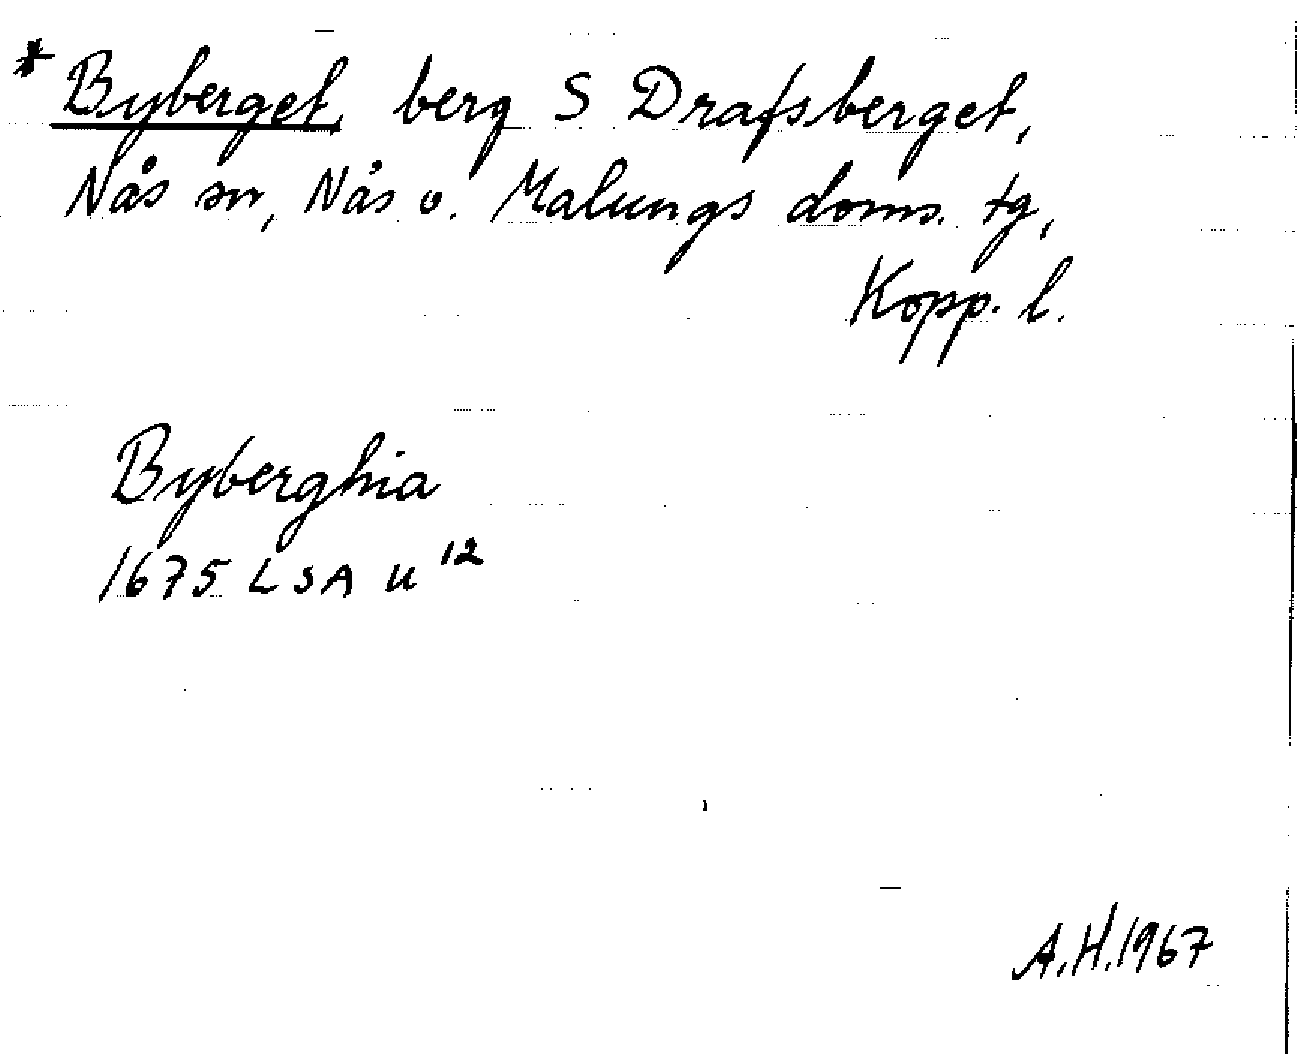 * Byberget, berg S Drafsberget,
Nås sn, Nås o. Malungs doms. tg,
Kopp. l.
Byberghia
1675 LSA U 12
A.H. 1967